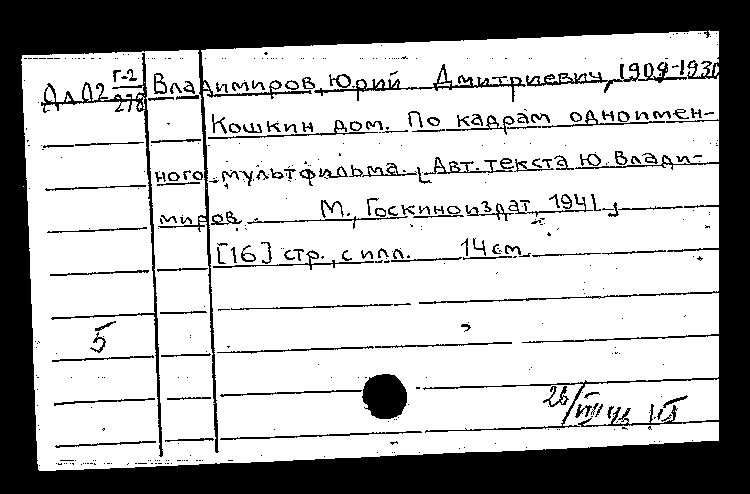 Дл02 Г-2/278 Владимиров, Юрий Дмитриевич, 1909-1930
Кошкин дом. По кадрам одноимен-
ного мультфильма. [Авт. текста Ю. Влади-
миров. М., Госкиноиздат, 1941.
[16] стр., с илл. 14 см.
5